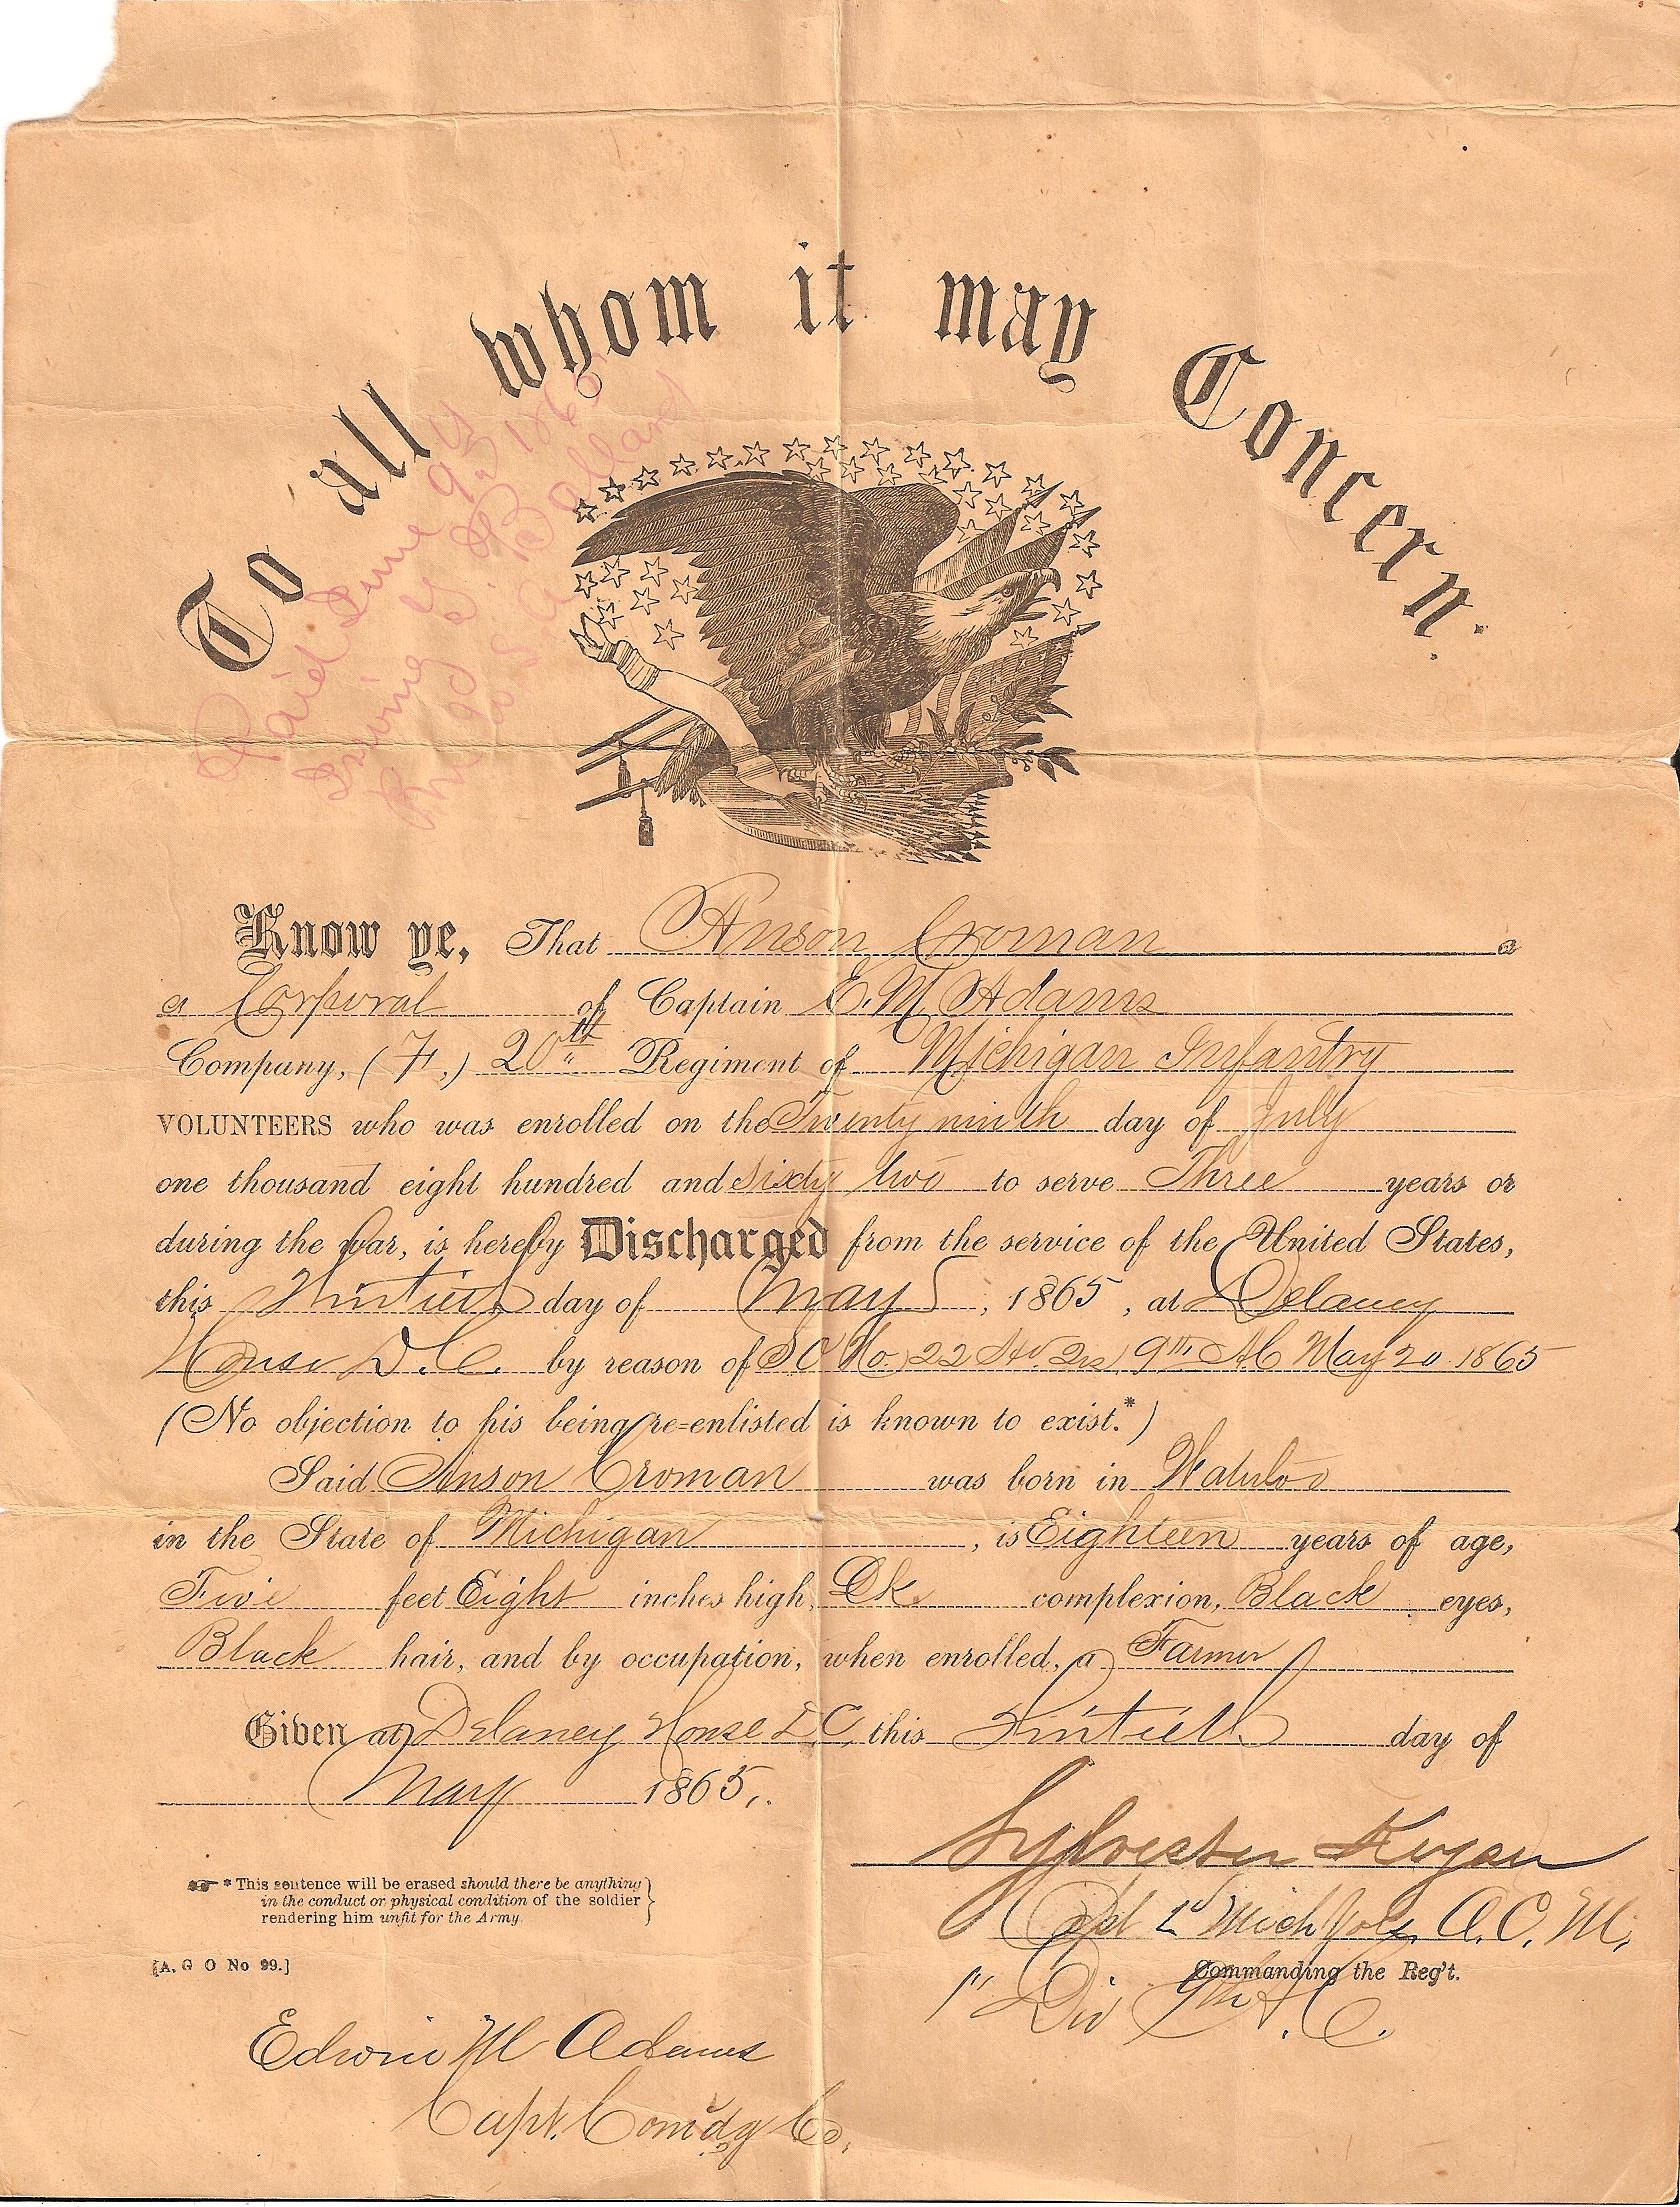 To all whom it may Concern.
Paid June 9th 1865
Know ye, That Anson Croman a
a Corporal of Captain E. M. Adams
Company, (F,) 20th Regiment of Michigan Infantry
VOLUNTEERS who was enrolled on the Twenty ninth day of July
one thousand eight hundred and Sixty two to serve Three years or
during the war, is hereby Discharged from the service of the United States,
this Thirtieth day of May, 1865, at Delaney
House D.C. by reason of S O No. 22 9th A C May 20 1865
(No objection to his being re-enlisted is known to exist.*)
Said Anson Croman was born in Waterloo
in the State of Michigan, is Eighteen years of age,
Five feet Eight inches high, Dk. complexion, Black eyes,
Black hair, and by occupation, when enrolled, a Farmer
Given at Delaney House D.C. this Thirtieth day of
May 1865.
Sylvester Keyser
Capt 2d Mich Vols. A. C. M.
Commanding the Reg't.
1st Div 9th A. C.
* This sentence will be erased should there be anything
in the conduct or physical condition of the soldier
rendering him unfit for the Army.
[A. G O No 99.]
Edwin M Adams
Capt. Comdg Co.